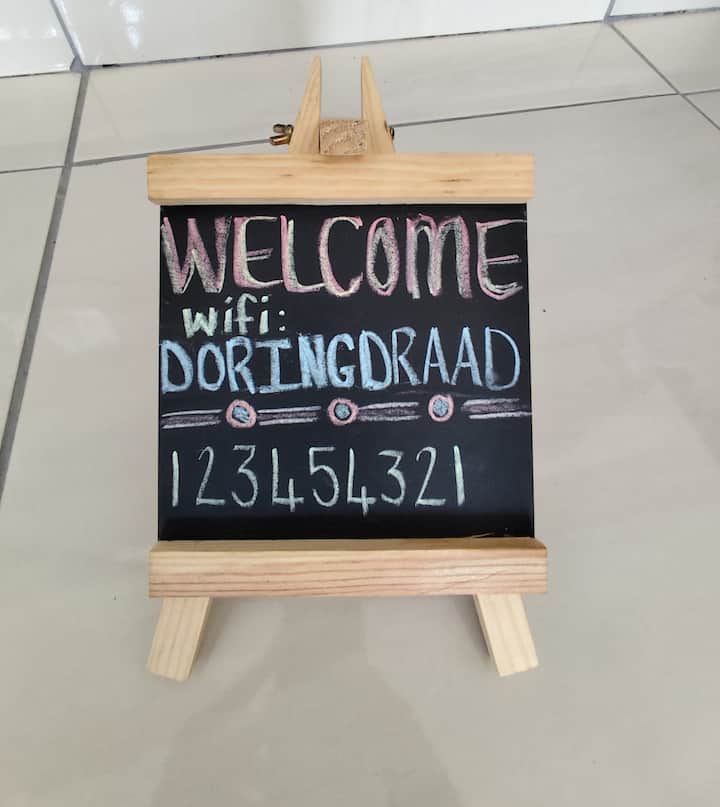 WELCOME
wifi:
DORINGDRAAD
123454321